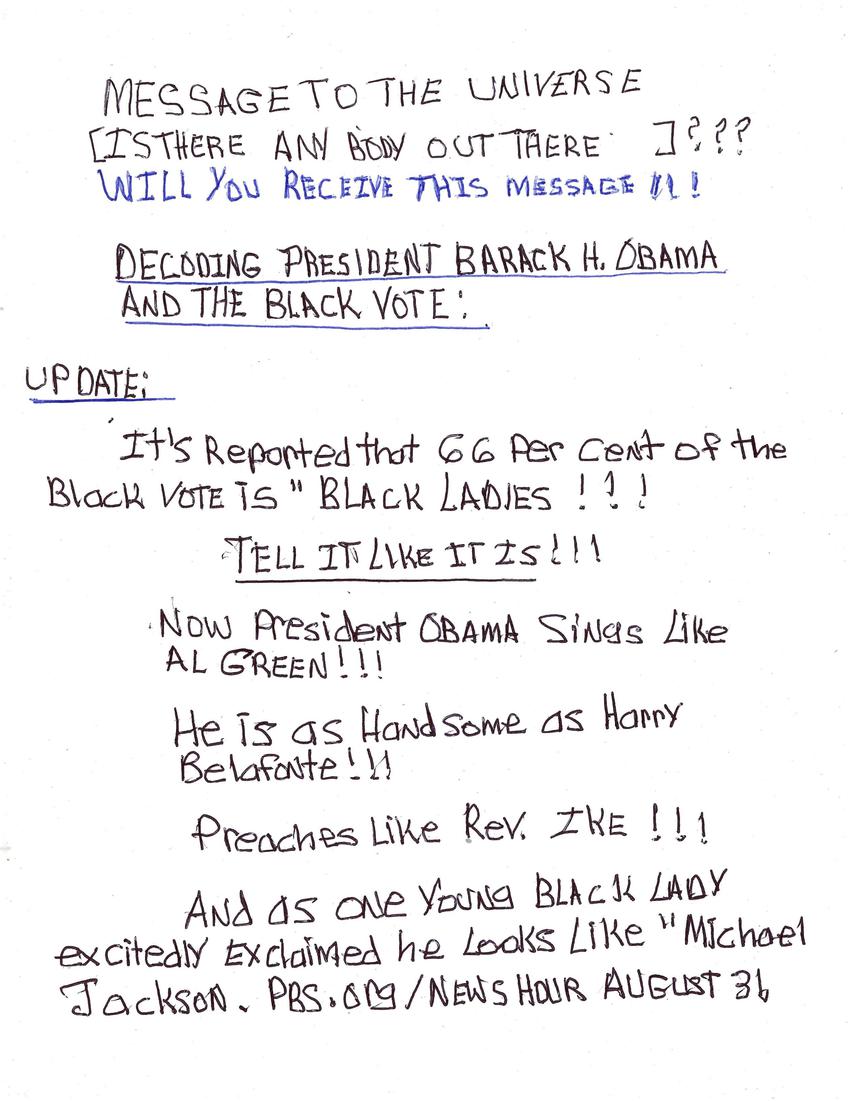 MESSAGE TO THE UNIVERSE
[IS THERE ANY BODY OUT THERE ]???
WILL YOU RECEIVE THIS MESSAGE !!!
DECODING PRESIDENT BARACK H. OBAMA
AND THE BLACK VOTE:
UPDATE:
It's Reported that 66 Per Cent of the
Black VOTE IS " BLACK LADIES !!!
TELL IT LIKE IT IS!!!
NOW President OBAMA Sings Like
AL GREEN!!!
He is as Handsome as Harry
Belafonte!!!
Preaches Like Rev. IKE !!!
And as one Young BLACK LADY
excitedly exclaimed he Looks Like "Michael
Jackson. PBS.Org/NEWSHOUR AUGUST 31,